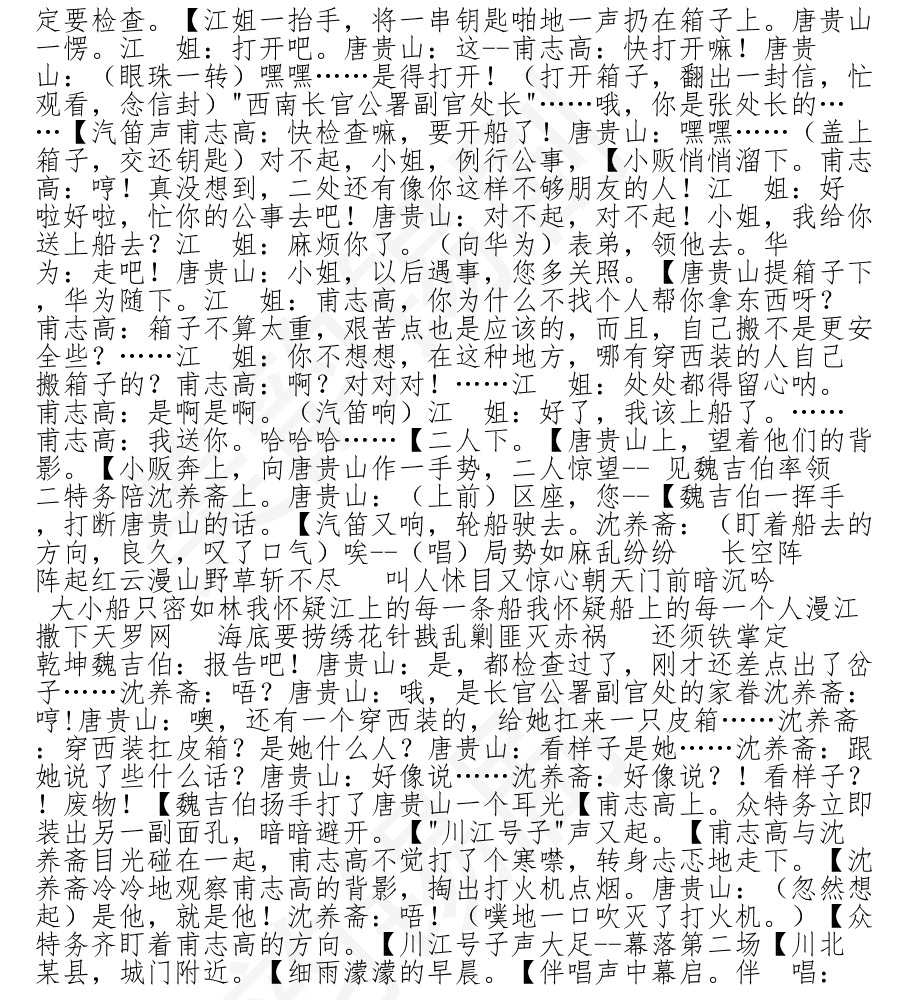 定要检查。【江姐一抬手，将一串钥匙啪地一声扔在箱子上。唐贵山
一愣。江　姐：打开吧。唐贵山：这--甫志高：快打开嘛！唐贵
山：（眼珠一转）嘿嘿……是得打开！（打开箱子，翻出一封信，忙
观看，念信封）"西南长官公署副官处长"……哦，你是张处长的…
…【汽笛声甫志高：快检查嘛，要开船了！唐贵山：嘿嘿……（盖上
箱子，交还钥匙）对不起，小姐，例行公事，【小贩悄悄溜下。甫志
高：哼！真没想到，二处还有像你这样不够朋友的人！江　姐：好
啦好啦，忙你的公事去吧！唐贵山：对不起，对不起！小姐，我给你
送上船去？江　姐：麻烦你了。（向华为）表弟，领他去。华
为：走吧！唐贵山：小姐，以后遇事，您多关照。【唐贵山提箱子下
，华为随下。江　姐：甫志高，你为什么不找个人帮你拿东西呀？
甫志高：箱子不算太重，艰苦点也是应该的，而且，自己搬不是更安
全些？……江　姐：你不想想，在这种地方，哪有穿西装的人自己
搬箱子的？甫志高：啊？对对对！……江　姐：处处都得留心呐。
甫志高：是啊是啊。（汽笛响）江　姐：好了，我该上船了。……
甫志高：我送你。哈哈哈……【二人下。【唐贵山上，望着他们的背
影。【小贩奔上，向唐贵山作一手势，二人惊望-- 见魏吉伯率领
二特务陪沈养斋上。唐贵山：（上前）区座，您--【魏吉伯一挥手
，打断唐贵山的话。【汽笛又响，轮船驶去。沈养斋：（盯着船去的
方向，良久，叹了口气）唉--（唱）局势如麻乱纷纷　 长空阵
阵起红云漫山野草斩不尽　 叫人怵目又惊心朝天门前暗沉吟
 大小船只密如林我怀疑江上的每一条船我怀疑船上的每一个人漫江
撒下天罗网　 海底要捞绣花针戡乱剿匪灭赤祸　 还须铁掌定
乾坤魏吉伯：报告吧！唐贵山：是，都检查过了，刚才还差点出了岔
子……沈养斋：唔？唐贵山：哦，是长官公署副官处的家眷沈养斋：
哼!唐贵山：噢，还有一个穿西装的，给她扛来一只皮箱……沈养斋
：穿西装扛皮箱？是她什么人？唐贵山：看样子是她……沈养斋：跟
她说了些什么话？唐贵山：好像说……沈养斋：好像说？！看样子？
！废物！【魏吉伯扬手打了唐贵山一个耳光【甫志高上。众特务立即
装出另一副面孔，暗暗避开。【"川江号子"声又起。【甫志高与沈
养斋目光碰在一起，甫志高不觉打了个寒噤，转身忐忑地走下。【沈
养斋冷冷地观察甫志高的背影，掏出打火机点烟。唐贵山：（忽然想
起）是他，就是他！沈养斋：唔！（噗地一口吹灭了打火机。）【众
特务齐盯着甫志高的方向。【川江号子声大足--幕落第二场【川北
某县，城门附近。【细雨濛濛的早晨。【伴唱声中幕启。伴　唱：